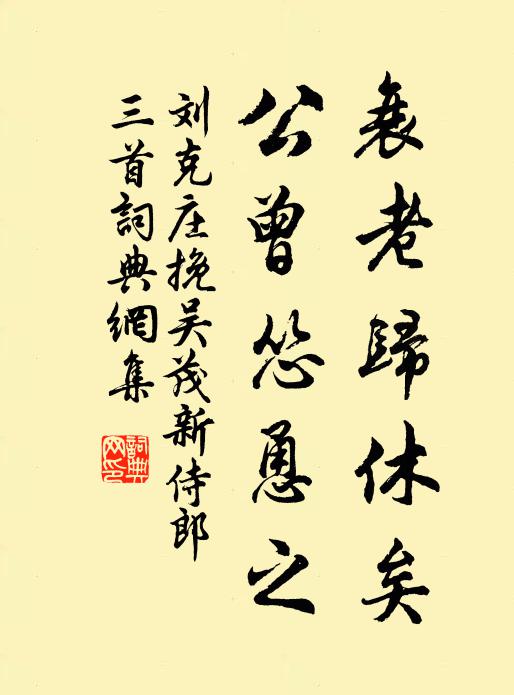 衰老歸休矣
公曾怂恿之
刘克庄挽吴茂新侍郎
三首詞典網集
詞典网印